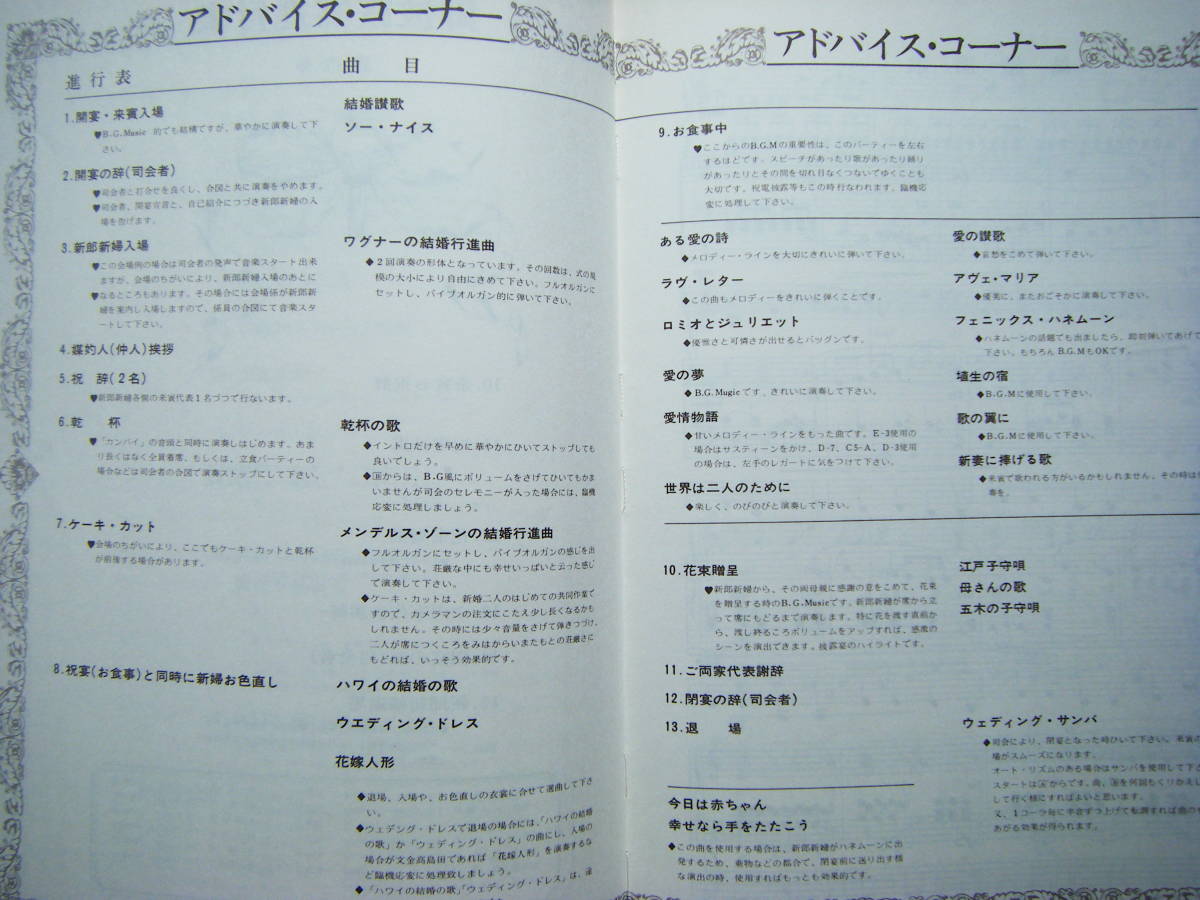 アドバイス・コーナー
進行表
曲　目
1.開宴・来賓入場
♥B.G.Music 的でも結構ですが、華やかに演奏して下
さい。
結婚讃歌
ソー・ナイス
2.開宴の辞(司会者)
♥司会者と打合せを良くし、合図と共に演奏をやめます。
♥司会者、開宴宣言と、自己紹介につづき新郎新婦の入
場を告げます。
3.新郎新婦入場
♥この会場例の場合は司会者の発声で音楽スタート出来
ますが、会場のちがいにより、新郎新婦入場のあとに
♥なるところもあります。その場合には会場係が新郎新
婦を案内し入場しますので、係員の合図にて音楽スタ
ートして下さい。
ワグナーの結婚行進曲
◆２回演奏の形体となっています。その回数は、式の規
模の大小により自由にきめて下さい。フルオルガンに
セットし、パイプオルガン的に弾いて下さい。
4.媒妁人(仲人)挨拶
5.祝　辞(２名)
♥新郎新婦各側の来賓代表１名づつで行ないます。
6.乾　　杯
♥「カンパイ」の音頭と同時に演奏しはじめます。あま
り長くはなく全員着席、もしくは、立食パーティーの
場合などは司会者の合図で演奏ストップにして下さい。
乾杯の歌
◆イントロだけを早めに華やかにひいてストップしても
良いでしょう。
からは、B・G風にボリュームをさげてひいてもかま
いませんが司会のセレモニーが入った場合には、臨機
応変に処理しましょう。
7.ケーキ・カット
♥会場のちがいにより、ここでもケーキ・カットと乾杯
が前後する場合があります。
メンデルス・ゾーンの結婚行進曲
◆フルオルガンにセットし、パイプオルガンの感じを出
して下さい。荘厳な中にも幸せいっぱいと云った感じ
で演奏して下さい。
◆ケーキ・カットは、新婚二人のはじめての共同作業で
すので、カメラマンの注文にこたえ少し長くなるかも
しれません。その時には少々音量をさげて弾きつづけ、
二人が席につくころをみはからいまたもとの荘厳さに
もどれば、いっそう効果的です。
8.祝宴(お食事)と同時に新婦お色直し
ハワイの結婚の歌
ウエディング・ドレス
花嫁人形
◆退場、入場や、お色直しの衣裳に合せて選曲して下さ
い。
◆ウェデング・ドレスで退場の場合には、「ハワイの結婚
の歌」か「ウェディング・ドレス」の曲にし、入場の
場合が文金高島田であれば「花嫁人形」を演奏するな
ど臨機応変に処理致しましょう。
◆「ハワイの結婚の歌」「ウェディング・ドレス」は、
アドバイス・コーナー
9.お食事中
♥ここからのB.G.Mの重要性は、このパーティーを左右
するほどです。スピーチがあったり歌があったり踊り
があったりとその間を切れ目なくつないでゆくことも
大切です。祝電披露等もこの時行なわれます。臨機応
変に処理して下さい。
ある愛の詩
◆メロディー・ラインを大切にきれいに弾いて下さい。
ラヴ・レター
◆この曲もメロディーをきれいに弾くことです。
ロミオとジュリエット
◆優雅さと可憐さが出せるとバツグンです。
愛の夢
◆B.G.Mugicです、きれいに演奏して下さい。
愛情物語
◆甘いメロディー・ラインをもった曲です。E-3使用の
場合はサスティーンをかけ、D-7、C5-A、D-3使用
の場合は、左手のレガートに気をつけて下さい。
世界は二人のために
◆楽しく、のびのびと演奏して下さい。
愛の讃歌
◆哀愁をこめて弾いて下さい。
アヴェ・マリア
◆優美に、またおごそかに演奏して下さい。
フェニックス・ハネムーン
◆ハネムーンの話題でも出ましたら、即刻弾いてあげて
下さい。もちろんB.G.MもOKです。
埴生の宿
◆B.G.Mに使用して下さい。
歌の翼に
◆B.G.Mに使用して下さい。
新妻に捧げる歌
◆来賓で歌われる方がいるかもしれません。その時は
奏を。
10.花束贈呈
♥新郎新婦から、その両母親に感謝の意をこめて、花束
を贈呈する時のB.G.Musicです。新郎新婦が席から立
って席にもどるまで演奏します。特に花を渡す直前か
ら、渡し終るころボリュームをアップすれば、感激の
シーンを演出できます。披露宴のハイライトです。
江戸子守唄
母さんの歌
五木の子守唄
11.ご両家代表謝辞
12.閉宴の辞(司会者)
13.退　　場
ウェディング・サンバ
◆司会により、閉宴となった時ひいて下さい。来賓の
場がスムーズになります。
オート・リズムのある場合はサンバを使用して下さ
スタートは からです。尚、 を何回もくりかえし
して行く様にすればよいと思います。
又、１コーラ毎に半音ずつ上げて転調すれば曲の
あがる効果が得られます。
今日は赤ちゃん
幸せなら手をたたこう
◆この曲を使用する場合は、新郎新婦がハネムーンに出
発するため、乗物などの都合で、閉宴前に送り出す様
な演出の時、使用すればもっとも効果的です。